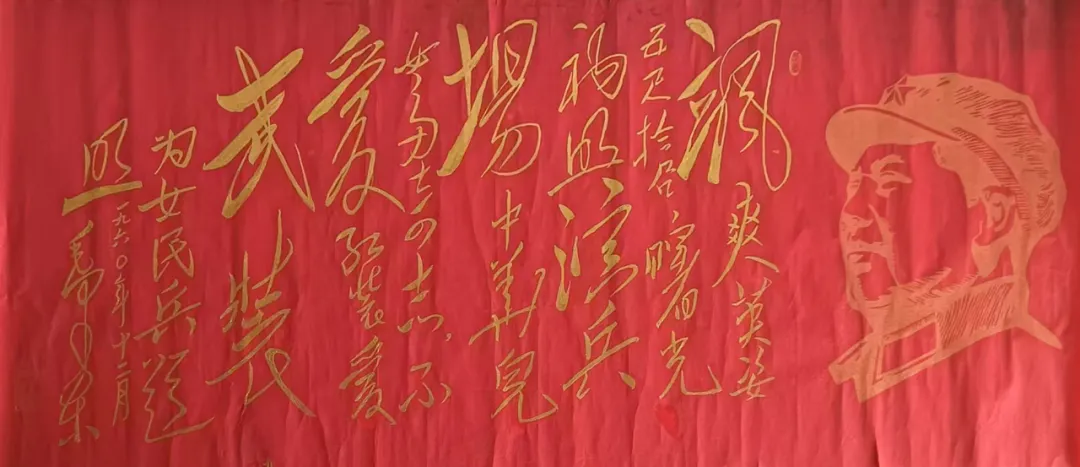 颯爽英姿
五尺槍曙光
初照演兵
場中華兒
女多奇志不
愛紅装愛
武装
为女民兵题
照
一九六〇年十二月
毛泽东